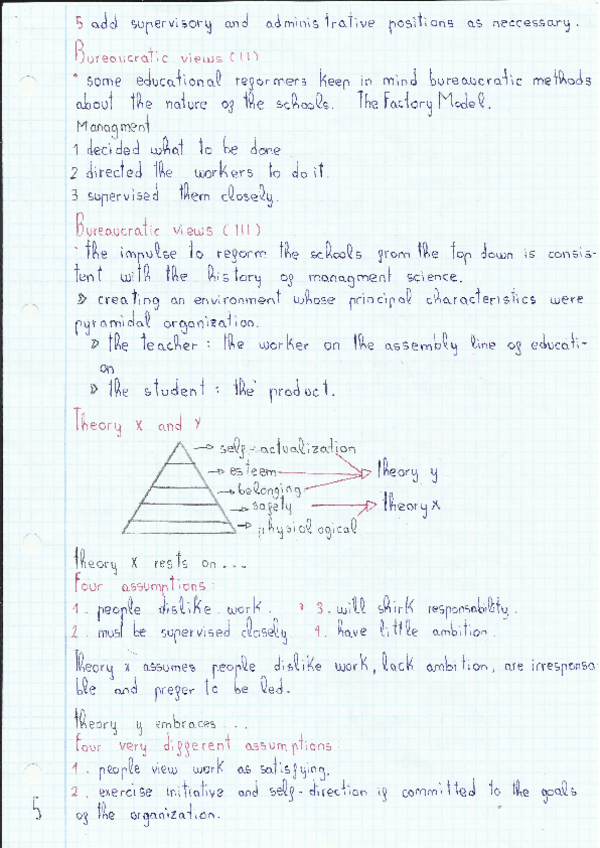 5 add supervisory and administrative positions as neccessary.
Bureaucratic views (II)
* some educational reformers keep in mind bureaucratic methods
about the nature of the schools. The Factory Model.
Managment
1 decided what to be done
2 directed the workers to do it.
3 supervised them closely.
Bureaucratic views (III)
· the impulse to reform the schools from the top down is consis-
tent with the history of managment science.
▷ creating an environment whose principal characteristics were
pyramidal organization.
▷ the teacher : the worker on the assembly line of educati-
on
▷ the student : the product.
Theory x and y
→ self-actualization
→ esteem → theory y
→ belonging
→ safety → theory x
→ physiological
theory x rests on...
Four assumptions:
1. people dislike work. * 3. will shirk responsability.
2. must be supervised closely 4. have little ambition.
Theory x assumes people dislike work, lack ambition, are irresponsa
ble and prefer to be led.
theory y embraces...
Four very different assumptions:
1. people view work as satisfying.
2. exercise initiative and self-direction if committed to the goals
of the organization.
5